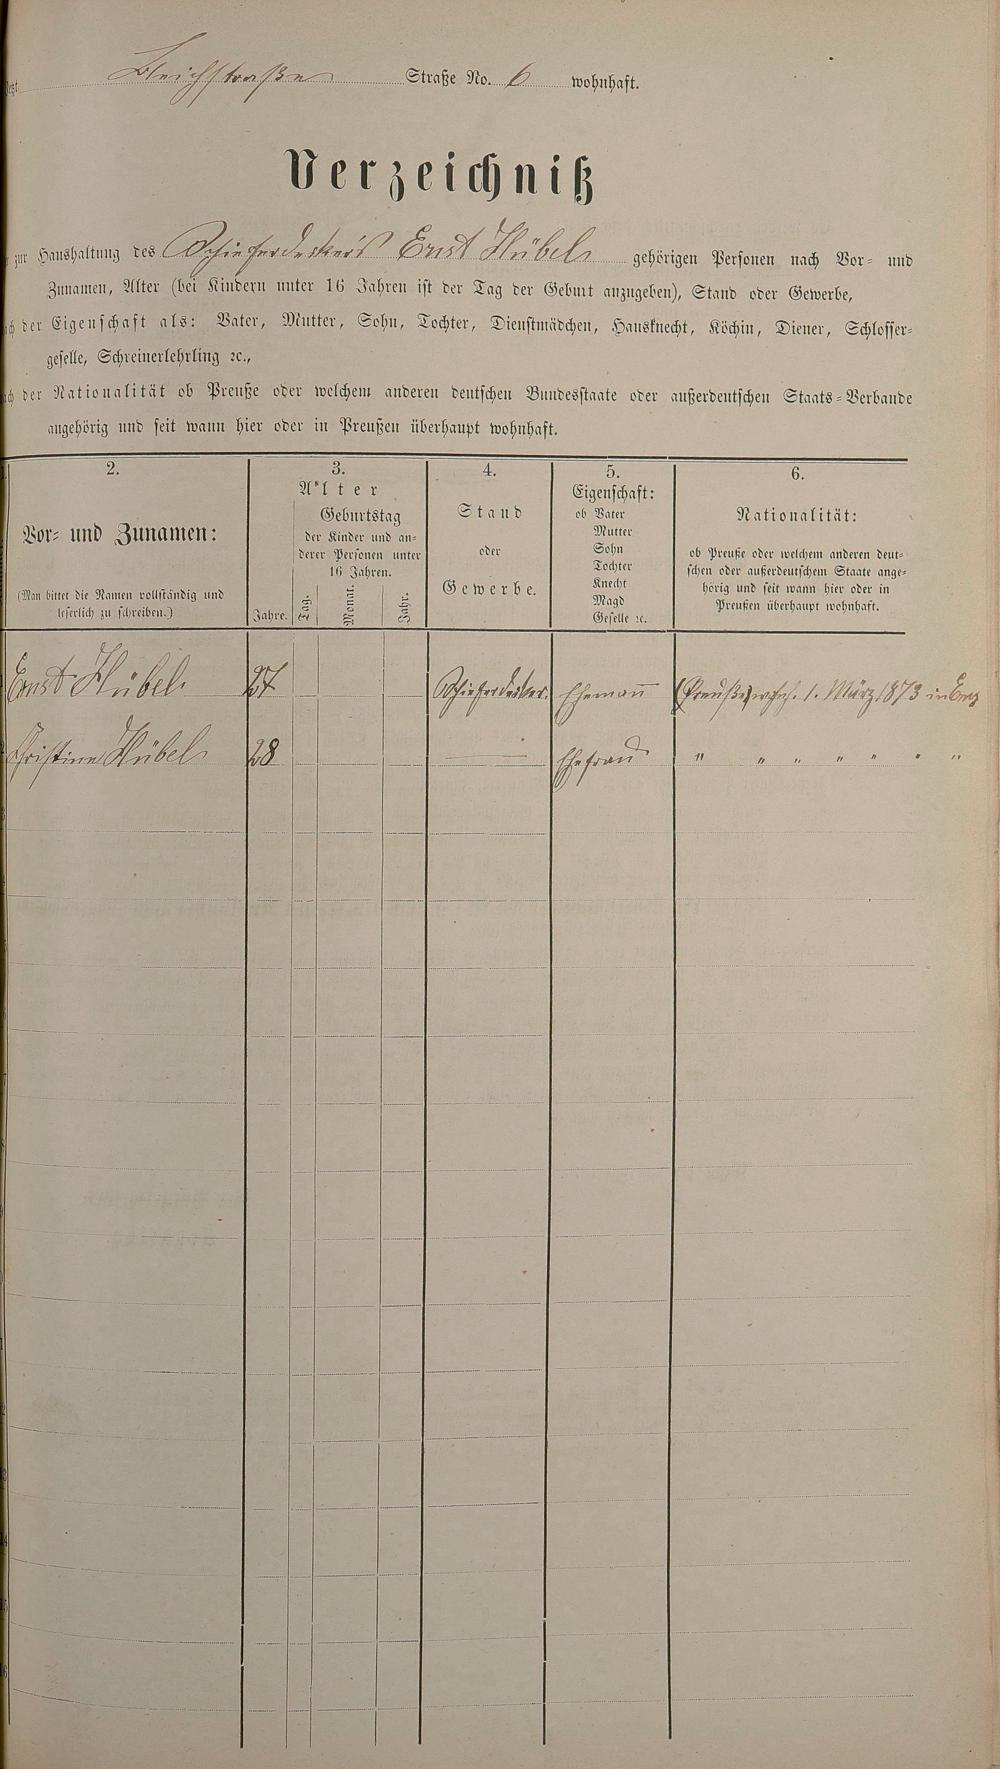 Bleichstraße Straße No. 6 wohnhaft.
Verzeichniß
zur Haushaltung des Schieferdecker's Ernst Hübel gehörigen Personen nach Vor- und
Zunamen, Alter (bei Kindern unter 16 Jahren ist der Tag der Geburt anzugeben), Stand oder Gewerbe,
der Eigenschaft als: Vater, Mutter, Sohn, Tochter, Dienstmädchen, Hausknecht, Köchin, Diener, Schlosser-
geselle, Schreinerlehrling ꝛc.,
der Nationalität ob Preuße oder welchem anderen deutschen Bundesstaate oder außerdeutschen Staats-Verbande
angehörig und seit wann hier oder in Preußen überhaupt wohnhaft.
2.
Vor- und Zunamen:
(Man bittet die Namen vollständig und
leserlich zu schreiben.)
3.
Alter
Geburtstag
der Kinder und an-
derer Personen unter
16 Jahren.
Jahre. Tag. Monat. Jahr.
4.
Stand
oder
Gewerbe.
5.
Eigenschaft:
ob Vater
Mutter
Sohn
Tochter
Knecht
Magd
Geselle ꝛc.
6.
Nationalität:
ob Preuße oder welchem anderen deut-
schen oder außerdeutschem Staate ange-
hörig und seit wann hier oder in
Preußen überhaupt wohnhaft.
Ernst Hübel 27 Schieferdecker. Ehemann (Preuße) 1. März 1873 in Ems
Christine Hübel 28 — Ehefrau " " " " " " "